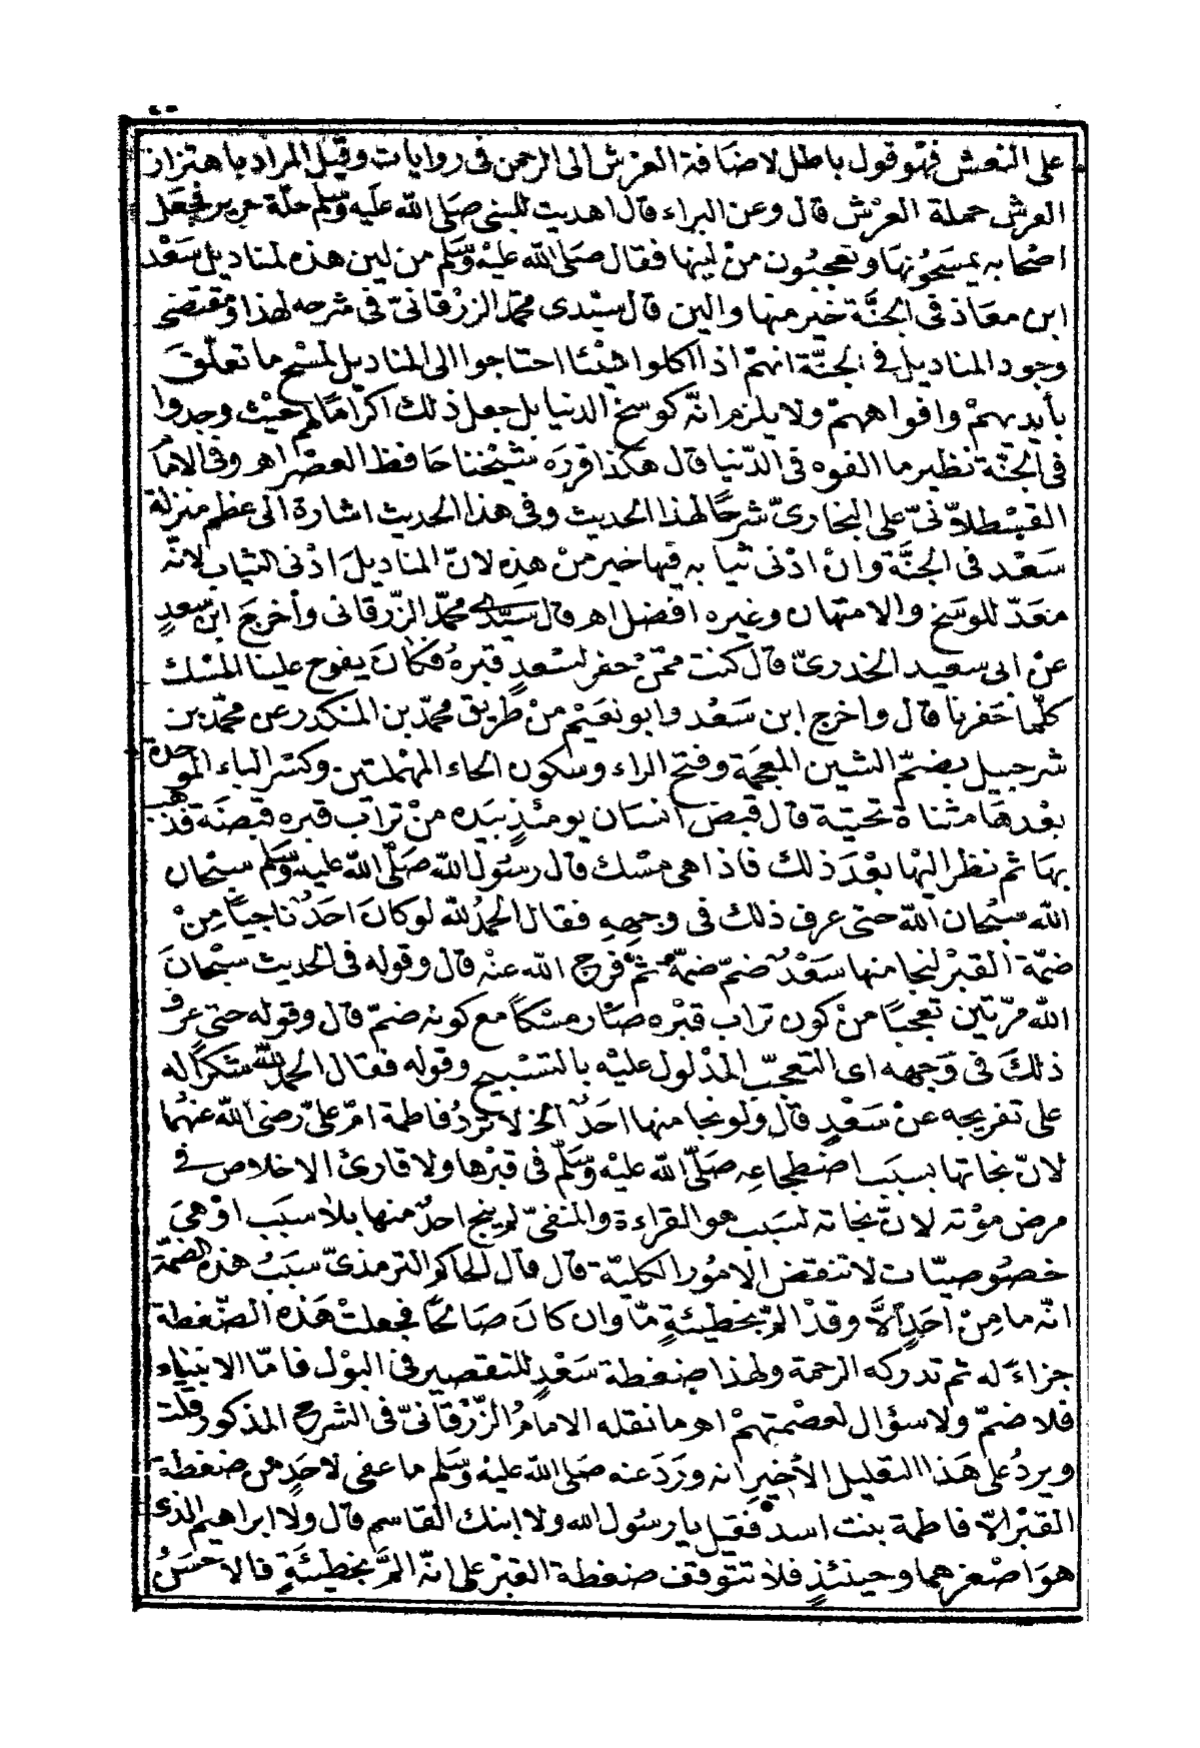 على النعش فهو قول باطل لاضافة العرش الى الرحمن فى روايات وقيل المراد باهتزاز
العرش حملة العرش قال وعن البراء قال اهديت للنبى صَلى الله عليه وسَلم حلّة حرير فجعَل
اصْحابه يمسَحونهَا ويتعجبون منْ لينها فقال صَلى الله عليْه وسَلم من لين هذه لمناديل سَعْد
ابن معَاذ فى الجنَّة خيْر منها والين قال سيّدى محمّد الزرْقانىّ فى شرحه لهذا ومقتضى
وجود المناديل فى الجنَّة انهمْ اذا اكلوا شيْئا احتاجوا الى المناديل لمسْح ما تعلّقَ
بأيديهمْ وافواههمْ ولا يلزم انّه كوسخ الدنيا بل جعل ذلك اكرَامًا لهم حيْث وجدوا
فى الجنَّة نظير ما الفوه فى الدّنيا قال هكذا قررَه شيْخنا حَافظ العصْر اهـ وفى الامَام
القسْطلاّنىّ على البخارىّ شرحًا لهذا الحديث وفى هذا الحديث اشارة الى عظم منزلة
سَعْد فى الجنَّة وانْ ادْنى ثيابه فيها خير منْ هذِه لانّ المناديلَ ادْنى الثياب لانّه
معَدّ للوسَخ والامتهان وغيره افضل اهـ قال سيّدى محمّد الزّرقانى وأخرجَ ابن سعدٍ
عنْ ابى سعيد الخدرىّ قال كنت ممّنْ حفر لسْعدٍ قبْرهُ فكَانَ يفوح علينا المسْك
كلّما حَفرنا قال واخرج ابن سَعْد وابو نعَيْم منْ طريق محمّد بن المنكدر عن محمّد بن
شرحبيل بضمّ الشين المعجمة وفتح الراء وسكون الحاء المهْملتين وكسْر الباء الموحدة
بعْدهَا مثناة تحتيّة قال قبض انسَان يومئذٍ بيَده منْ ترَاب قبره قبضَة فذهب
بهَا ثم نظر اليْها بعْدَ ذلك فاذا هى مسْك قال رسُول الله صَلّى الله عليه وسَلم سبْحان
الله سبْحان الله حتى عرف ذلك فى وجههِ فقال الحمدُ لله لو كانَ احَدٌ ناجيًا مِنْ
ضمّة القبْر لنجا منها سَعْدٌ ضمّ ضمّةً ثم فرج الله عنْه قال وقوله فى الحديث سبْحانَ
الله مرّتين تعجبًا منْ كون تراب قبْره صَار مسْكًا مع كونه ضمّ قال وقوله حتى عرف
ذلكَ فى وَجهه اى التعجّب المدْلول عليْه بالتسْبيح وقوله فقال الحمد لله شكرًا له
على تفريجه عنْ سَعْدٍ قال ولو نجا منها احَدٌ الخ لا تردُ فاطمة امّ علىّ رضى الله عنهُما
لانّ نجاتها بسبَب اضطجاعِه صَلّى الله عليْه وسَلّم فى قبْرها ولا قارئ الاخلاص فى
مرض موْته لانّ نجاته لسَبب هو القراءة والمنفىّ لم ينج احدٌ منها بلا سبَب اوْ هىَ
خصُوصيّات لا تنقض الامُور الكليّة قال قال الحاكم الترمذىّ سبَبُ هذه الضمّة
انّه ما مِنْ احَدٍ الاَّ وقدْ المّ بخطيئةٍ مّا وان كانَ صَالحًا فجعلتْ هَذه الضّغطة
جزاءً له ثم تدركه الرحمة ولهذا ضغطة سَعْدٍ للتقصير فى البوْل فامّا الانبياء
فلا ضمّ ولا سؤال لعصْمتهمْ اهـ ما نقله الامَامُ الزّرْقانىّ فى الشرح المذكور قلت
ويردُ على هَذا التعليل الأخير انه ورَدَ عنه صَلى الله عليْه وسَلم ما عفى لاحَدٍ من ضغطة
القبْر الاّ فاطمة بنت اسد فقيل يا رسُول الله ولا ابنك القاسم قال ولا ابراهيم الذى
هوَ اصْغرهما وحينئذٍ فلا تتوقف ضغطة القبْر على انّه المَّ بخطيئةٍ فالاحسَنُ